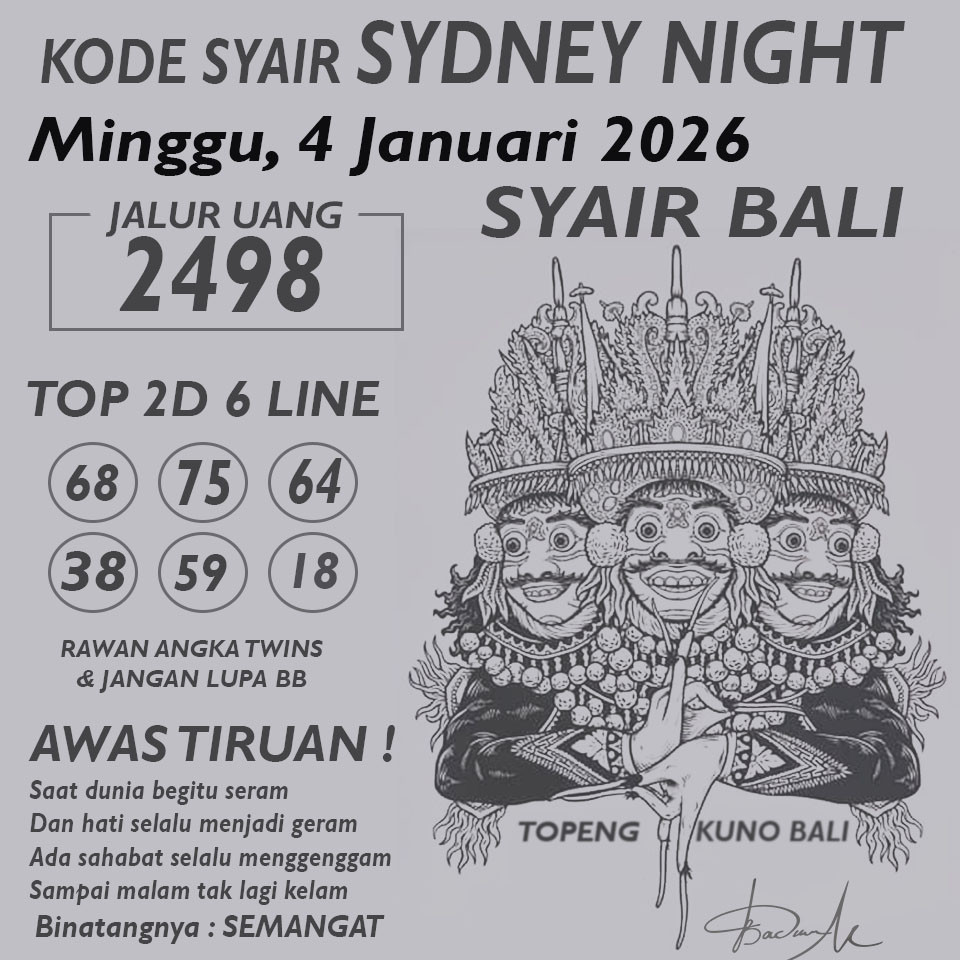 KODE SYAIR SYDNEY NIGHT
Minggu, 4 Januari 2026
SYAIR BALI
JALUR UANG
2498
TOP 2D 6 LINE
68 75 64
38 59 18
RAWAN ANGKA TWINS
& JANGAN LUPA BB
AWAS TIRUAN !
Saat dunia begitu seram
Dan hati selalu menjadi geram
Ada sahabat selalu menggenggam
Sampai malam tak lagi kelam
Binatangnya : SEMANGAT
TOPENG KUNO BALI